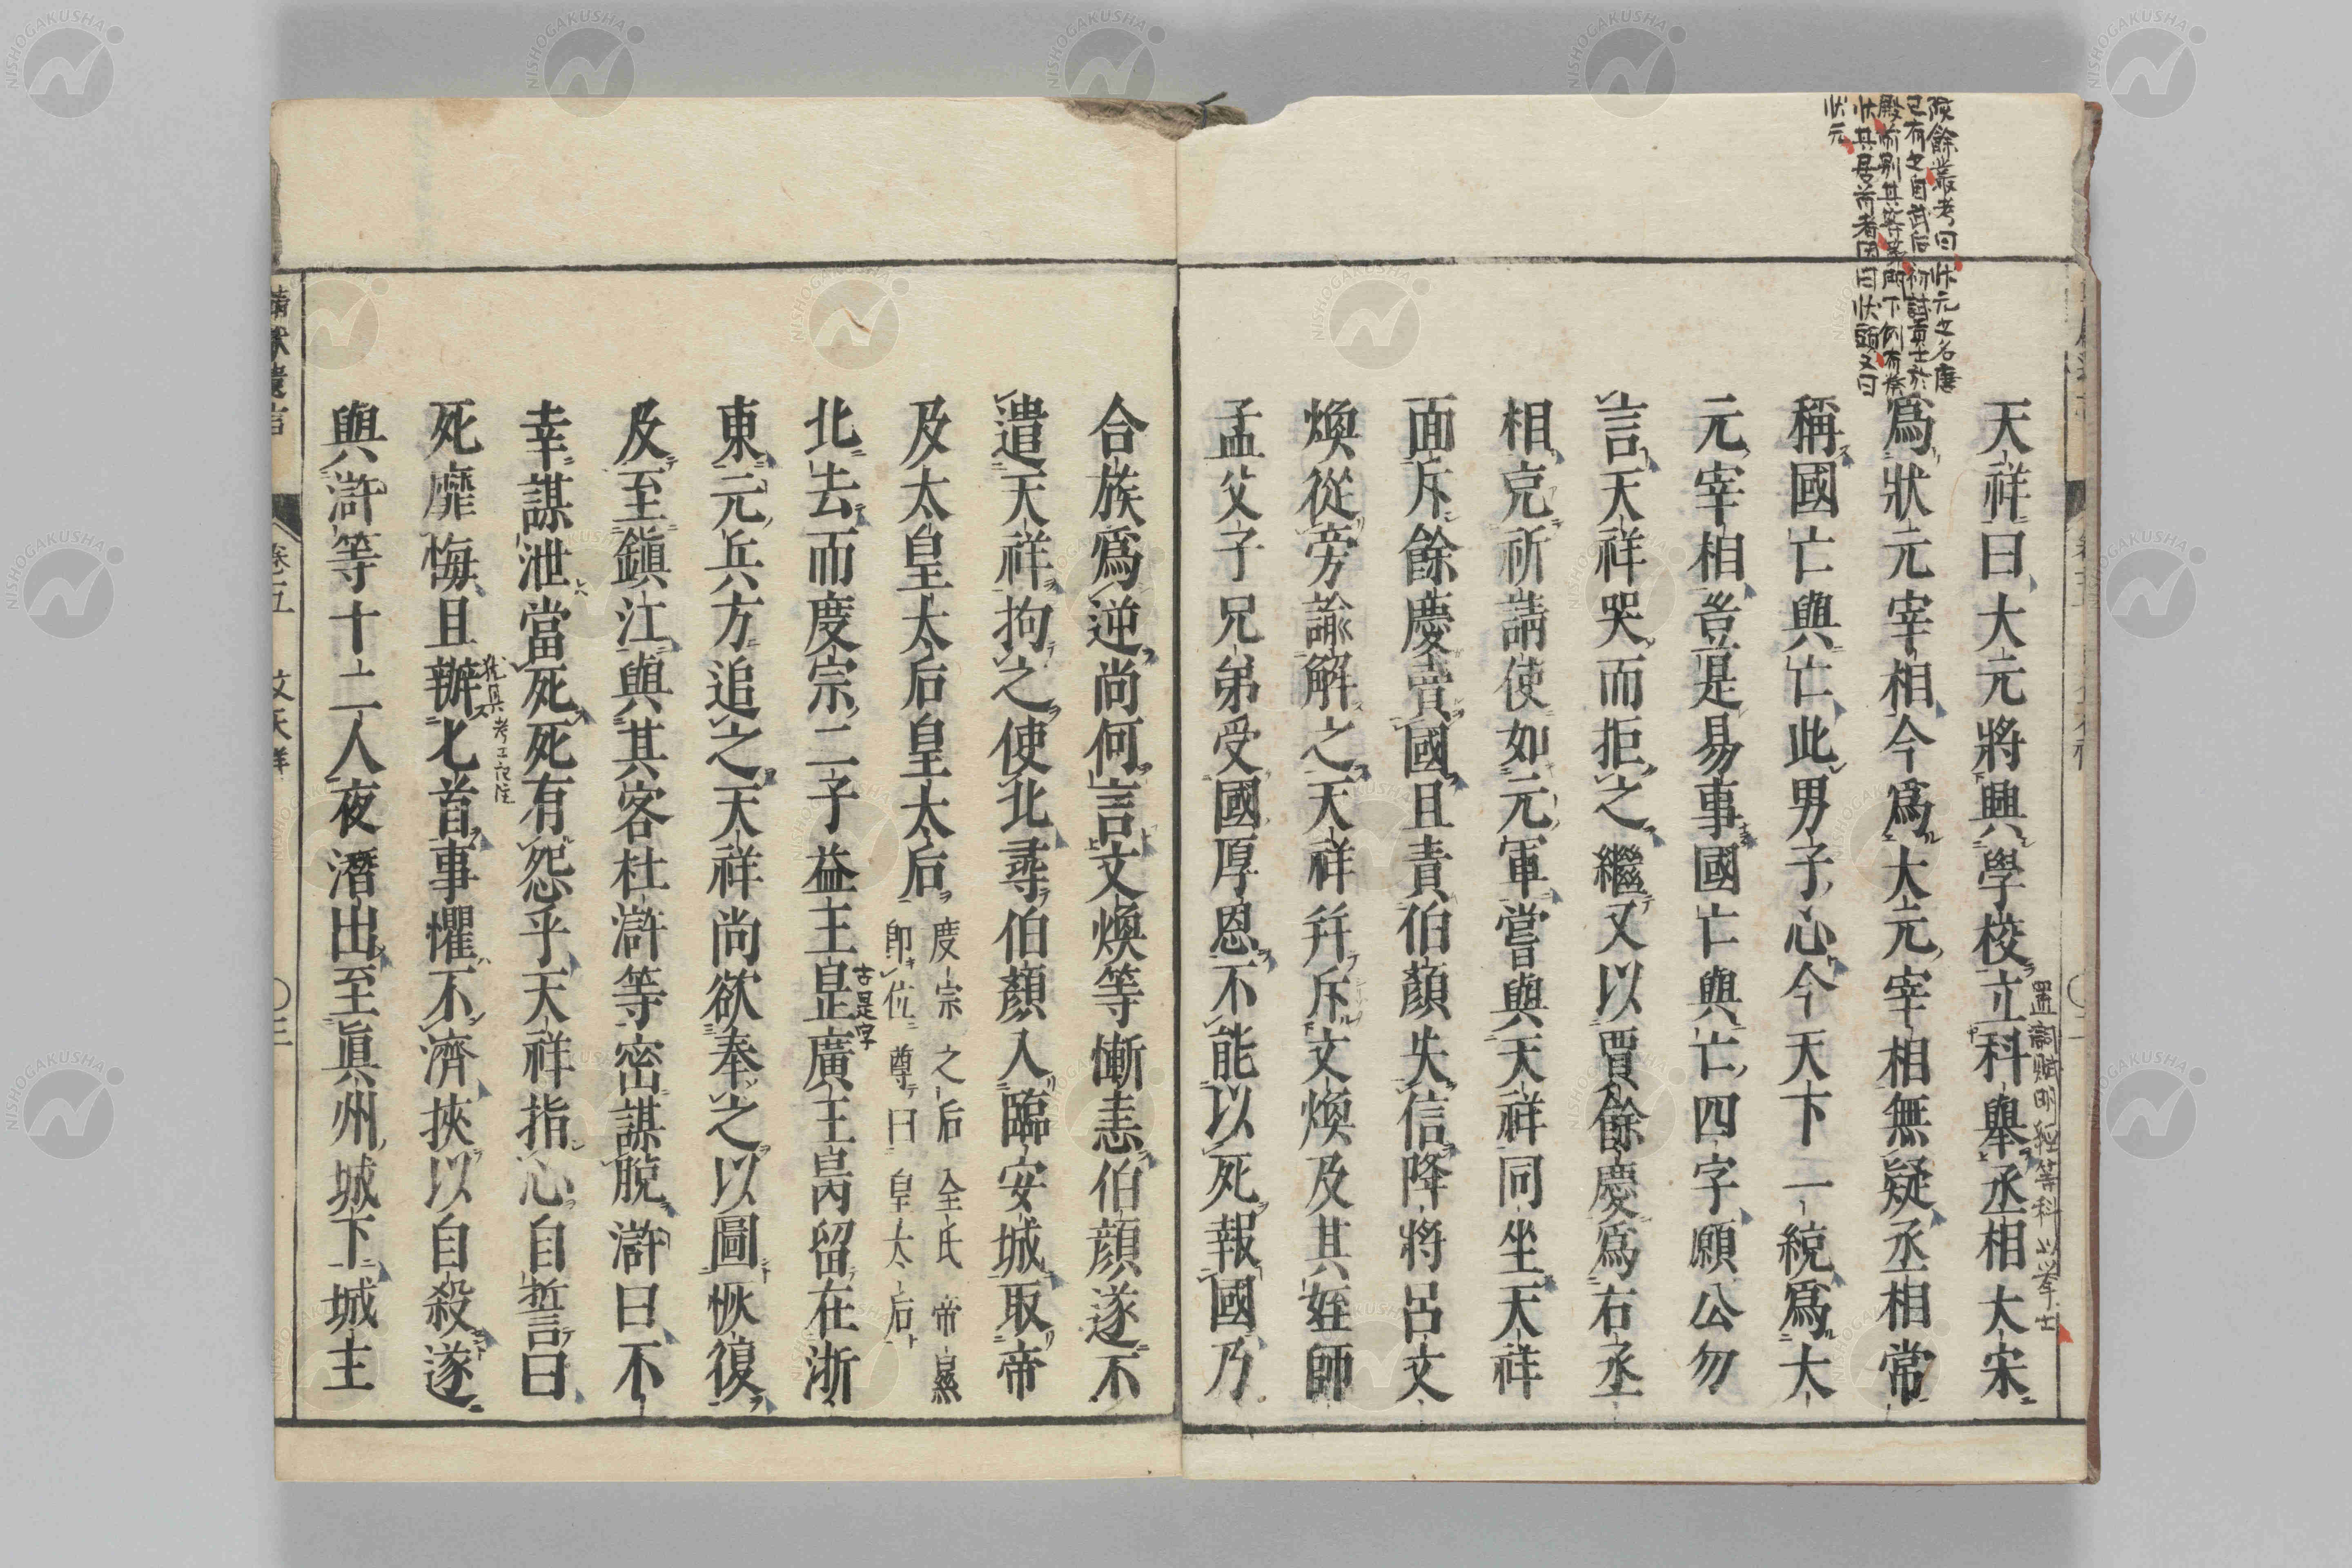 陔餘叢考曰狀元之名唐
已有之自武后初試貢士於
殿前別其等第門下例有奏
狀其居首者因曰狀頭又曰
狀元
天祥曰大元將興學校立科舉丞相大宋
置詞賦明經等科以挙士
爲狀元宰相今爲大元宰相無疑丞相常
稱國亡與亡此男子心今天下一統爲大
元宰相豈是易事國亡與亡四字願公勿
言天祥哭而拒之繼又以賈餘慶爲右丞
相充祈請使如元軍嘗與天祥同坐天祥
面斥餘慶賣國且責伯顏失信降將呂文
煥從旁諭解之天祥幷斥文煥及其姪師
孟父子兄弟受國厚恩不能以死報國乃
合族爲逆尚何言文煥等慚恚伯顏遂不
遣天祥拘之使北尋伯顏入臨安城取帝
及太皇太后皇太后
度宗之后全氏帝㬎
即位尊曰皇太后
北去而度宗二子益王昰廣王昺留在浙
古是字
東元兵方追之天祥尚欲奉之以圖恢復
及至鎭江與其客杜滸等密謀脫滸曰不
幸謀泄當死死有怨乎天祥指心自誓曰
死靡悔且辦匕首事懼不濟挾以自殺遂
猶具考工記注
與滸等十二人夜潛出至眞州城下城主
靖獻遺言
卷五
文天祥
〇三